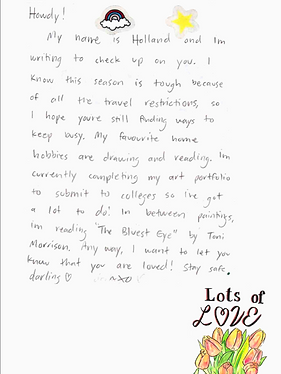 Howdy!
My name is Holland and Im
writing to check up on you. I
know this season is tough because
of all the travel restrictions, so
I hope you're still finding ways to
keep busy. My favourite home
hobbies are drawing and reading. Im
currently completing my art portfolio
to submit to colleges so ive got
a lot to do! In between paintings,
im reading "The Bluest Eye" by Toni
Morrison. Any way, I want to let you
know that you are loved! Stay safe,
darling ♡ ~xo
Lots of
LOVE